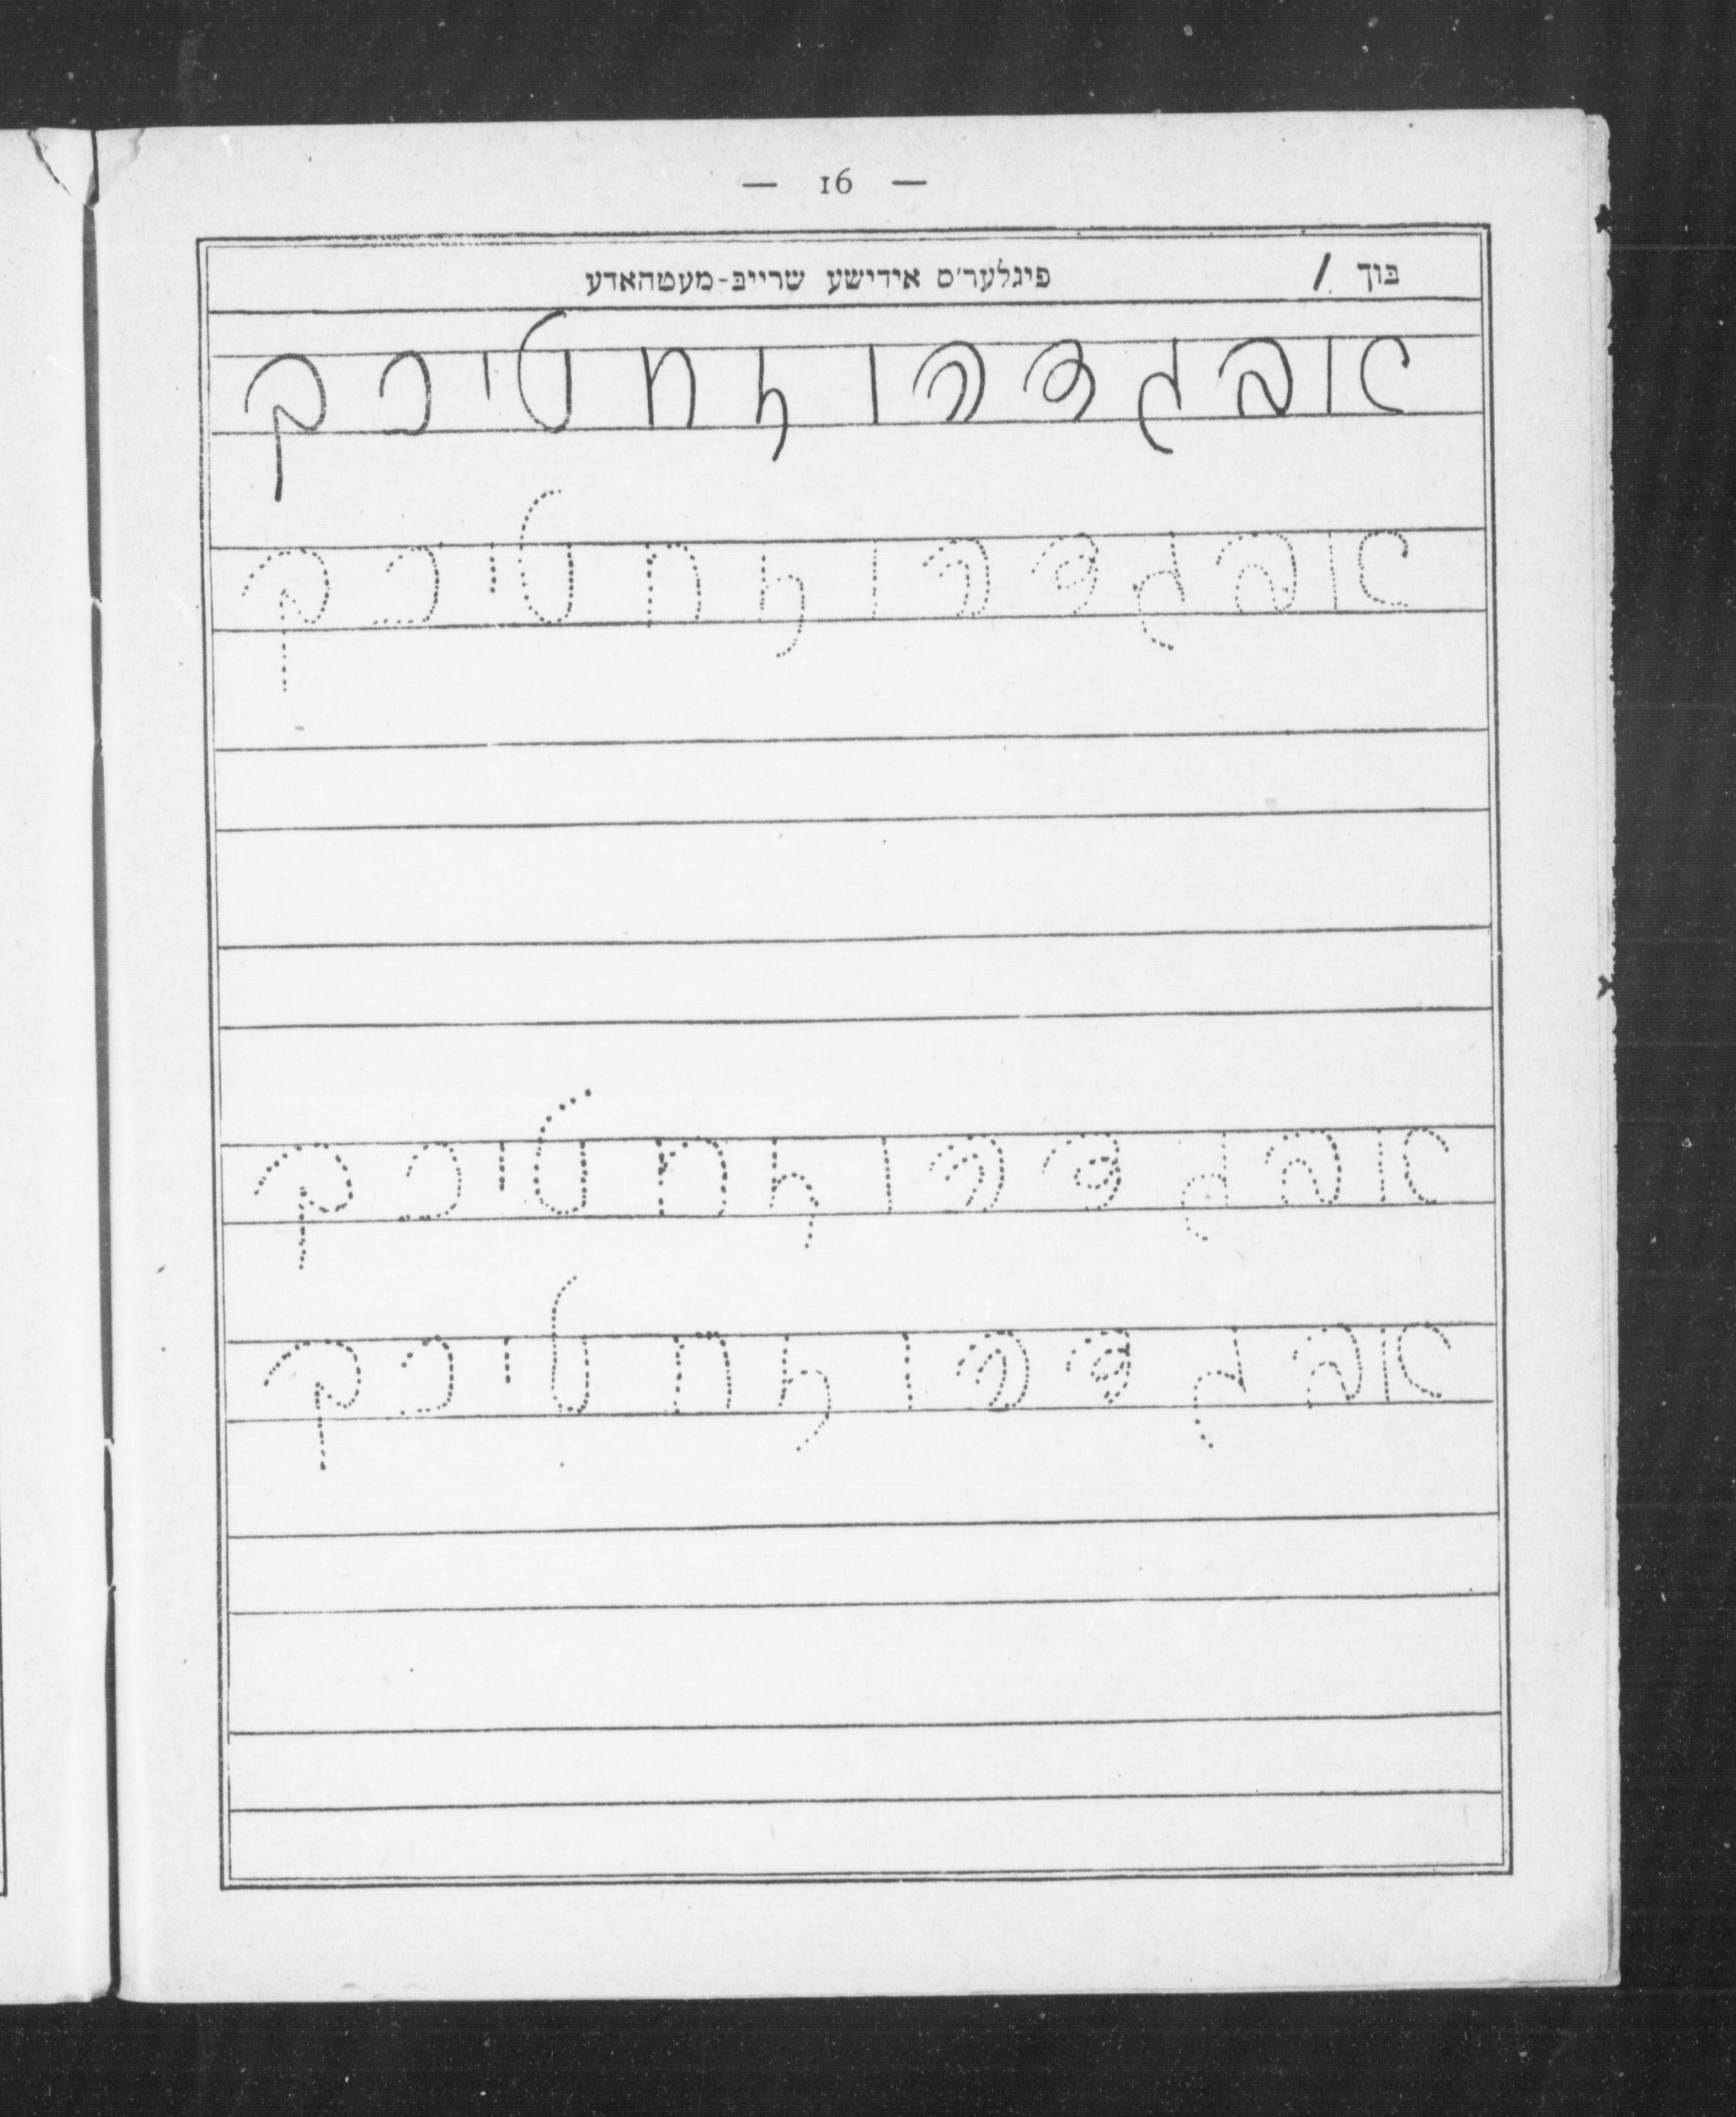 — 16 —
בוך 1 פיגלער׳ס אידישע שרייב-מעטהאדע
א ב ג ד ה ו ז ח ט י כ ך
א ב ג ד ה ו ז ח ט י כ ך
א ב ג ד ה ו ז ח ט י כ ך
א ב ג ד ה ו ז ח ט י כ ך